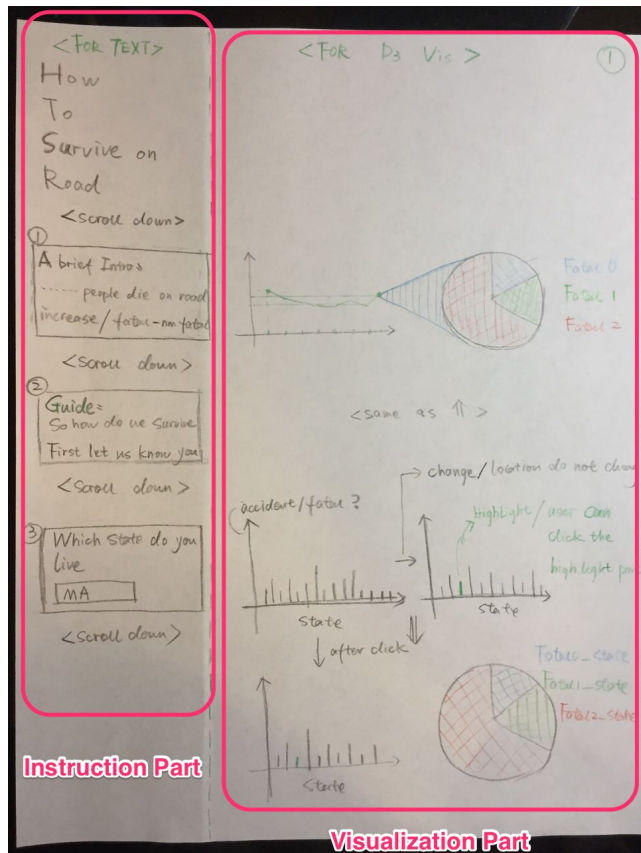 <FOR TEXT>
How
To
Survive on
Road
<scroll down>
①
A brief Intro:
...... people die on road
increase/fatal-non fatal
<Scroll down>
②
Guide:
So how do we survive
First let us know you
<Scroll down>
③
Which State do you
live
MA
<Scroll down>
Instruction Part
<FOR D3 Vis>
①
Fatal 0
Fatal 1
Fatal 2
<same as ⇑>
change/location do not chang
accident/fatal ?
Highlight/user can
click the
highlight par
State
State
after click
Fatal0_state
Fatal1_state
Fatal2_state
State
Visualization Part